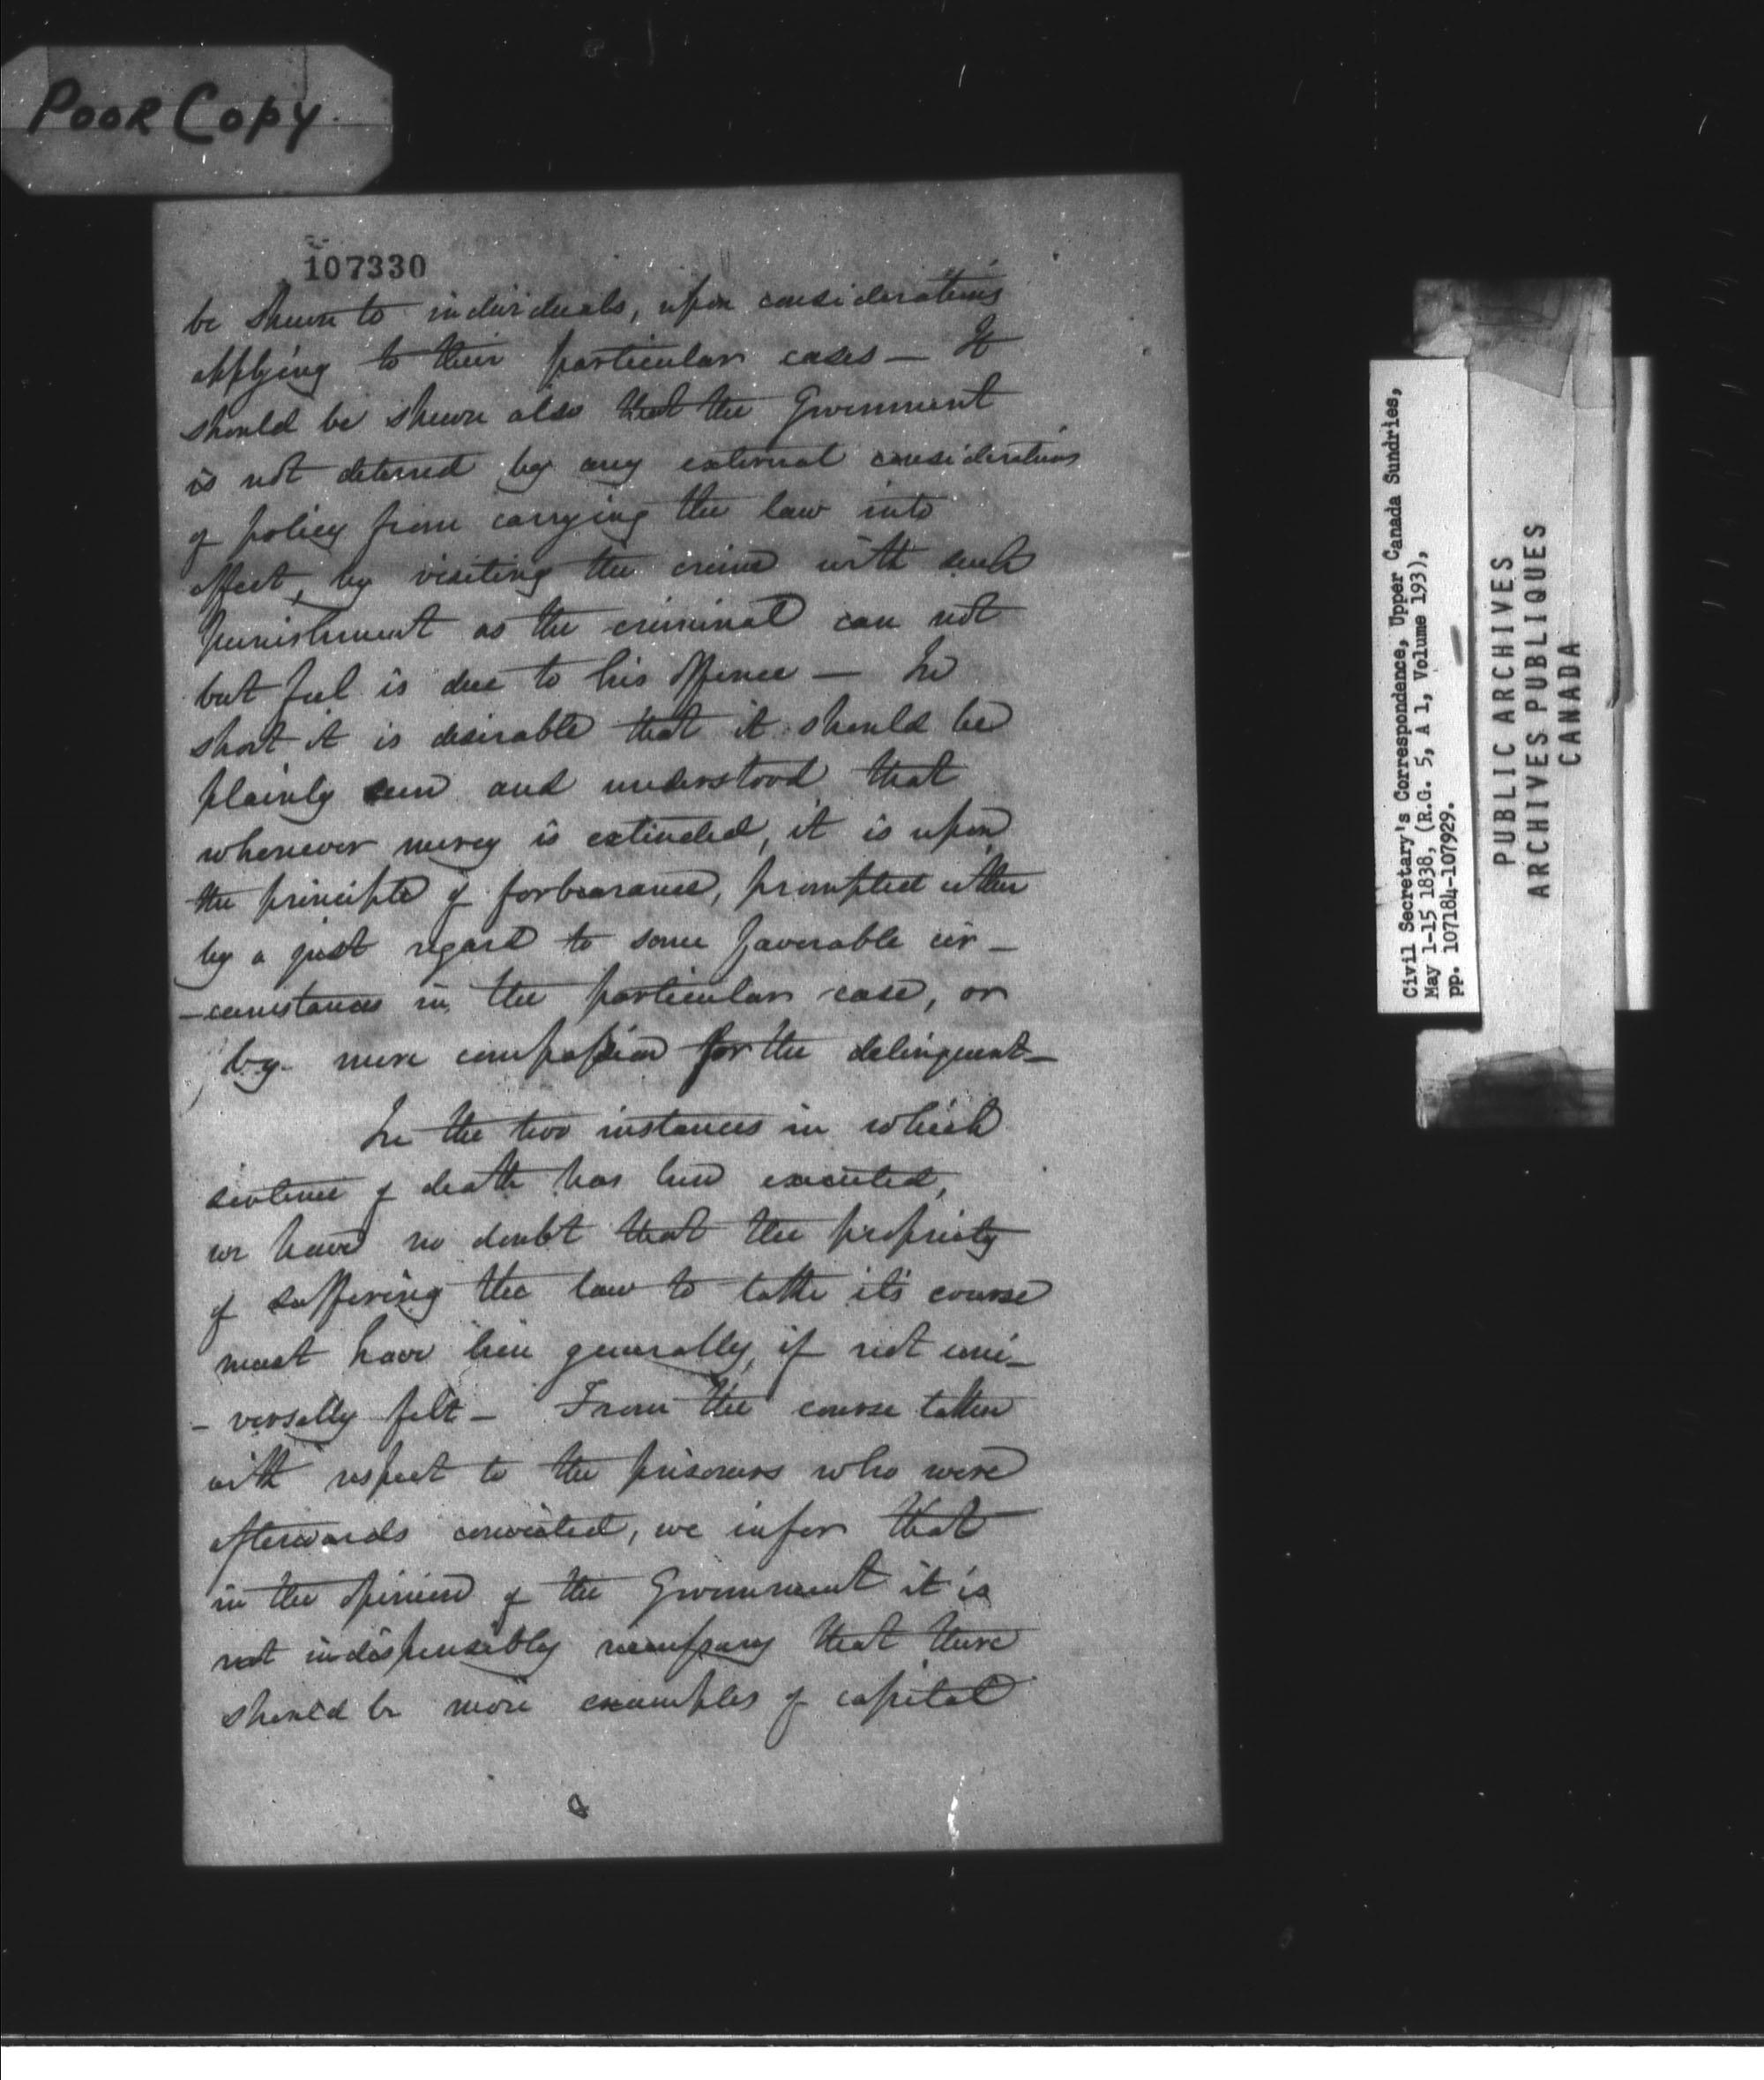 POOR COPY.
107330
be shewn to individuals, upon considerations
applying to their particular cases — It
should be shewn also that the Government
is not deterred by any external considerations
of policy from carrying the law into
effect, by visiting the crime with such
punishment as the criminal can not
but feel is due to his offence — In
short it is desirable that it should be
plainly seen and understood that
whenever mercy is extended, it is upon
the principle of forbearance, prompted either
by a just regard to some favorable cir-
-cumstances in the particular case, or
by mere compassion for the delinquent —
In the two instances in which
sentence of death has been executed,
we have no doubt that the propriety
of suffering the law to take it's course
must have been generally, if not uni-
-versally felt — From the course taken
with respect to the prisoners who were
afterwards convicted, we infer that
in the opinion of the Government it is
not indispensibly necessary that there
should be more examples of capital
Civil Secretary's Correspondence, Upper Canada Sundries,
May 1-15 1838, (R.G. 5, A 1, Volume 193),
pp. 107184-107929.
PUBLIC ARCHIVES
ARCHIVES PUBLIQUES
CANADA